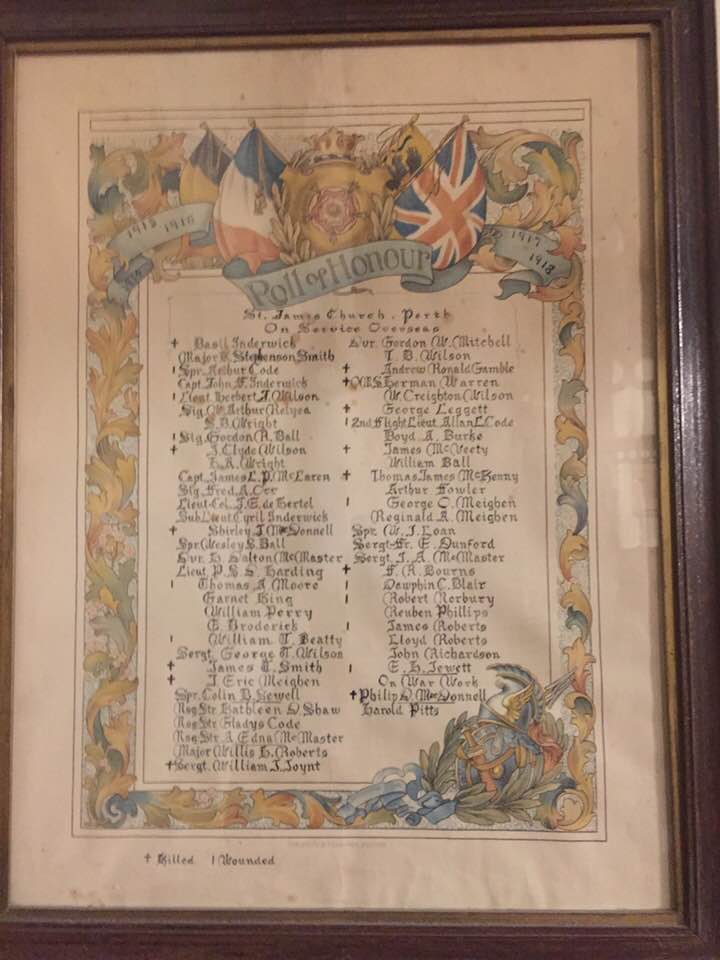 1915 1916
1917
1918
Roll of Honour
St. James Church, Perth
On Service Overseas
† Basil Inderwick
Major B. Stephenson Smith
| Spr. Arthur Code
Capt. John F. Inderwick
| Lieut. Herbert J. Wilson
Sig. W. Arthur Relyea
S. B. Wright
| Sig. Gordon A. Ball
† J. Clyde Wilson
H. A. Wright
Capt. James L. P. McLaren
Sig. Fred. A. Orr
Lieut-Col. J. E. de Hertel
Sub Lieut Cyril Inderwick
† Shirley J. McDonnell
Spr. Wesley S. Ball
Dvr. H. Dalton McMaster
Lieut. P. S. S. Harding
| Thomas A. Moore
Garnet King
William Perry
E. Broderick
| William T. Beatty
Sergt. George T. Wilson
† James C. Smith
† J. Eric Meighen
Spr. Colin B. Sewell
Nsg Str. Kathleen D. Shaw
Nsg Str. Gladys Code
Nsg Str. A. Edna McMaster
Major Willis H. Roberts
† Sergt. William J. Joynt
Dvr. Gordon W. Mitchell
T. B. Wilson
† Andrew Ronald Gamble
† Sherman Warren
W. Creighton Wilson
† George Leggett
| 2nd Flight Lieut. Allan L. Code
Boyd A. Burke
† James McVeety
William Ball
† Thomas James McKenny
Arthur Fowler
| George C. Meighen
Reginald A. Meighen
Spr. W. J. Loan
Sergt-Fr. E. Dunford
Sergt. J. A. McMaster
† F. R. Bourns
| Dawphin C. Blair
| Robert Norbury
Reuben Phillips
| James Roberts
Lloyd Roberts
John Richardson
| E. H. Jewett
On War Work
† Philip D. McDonnell
Harold Pitts
† Killed | Wounded